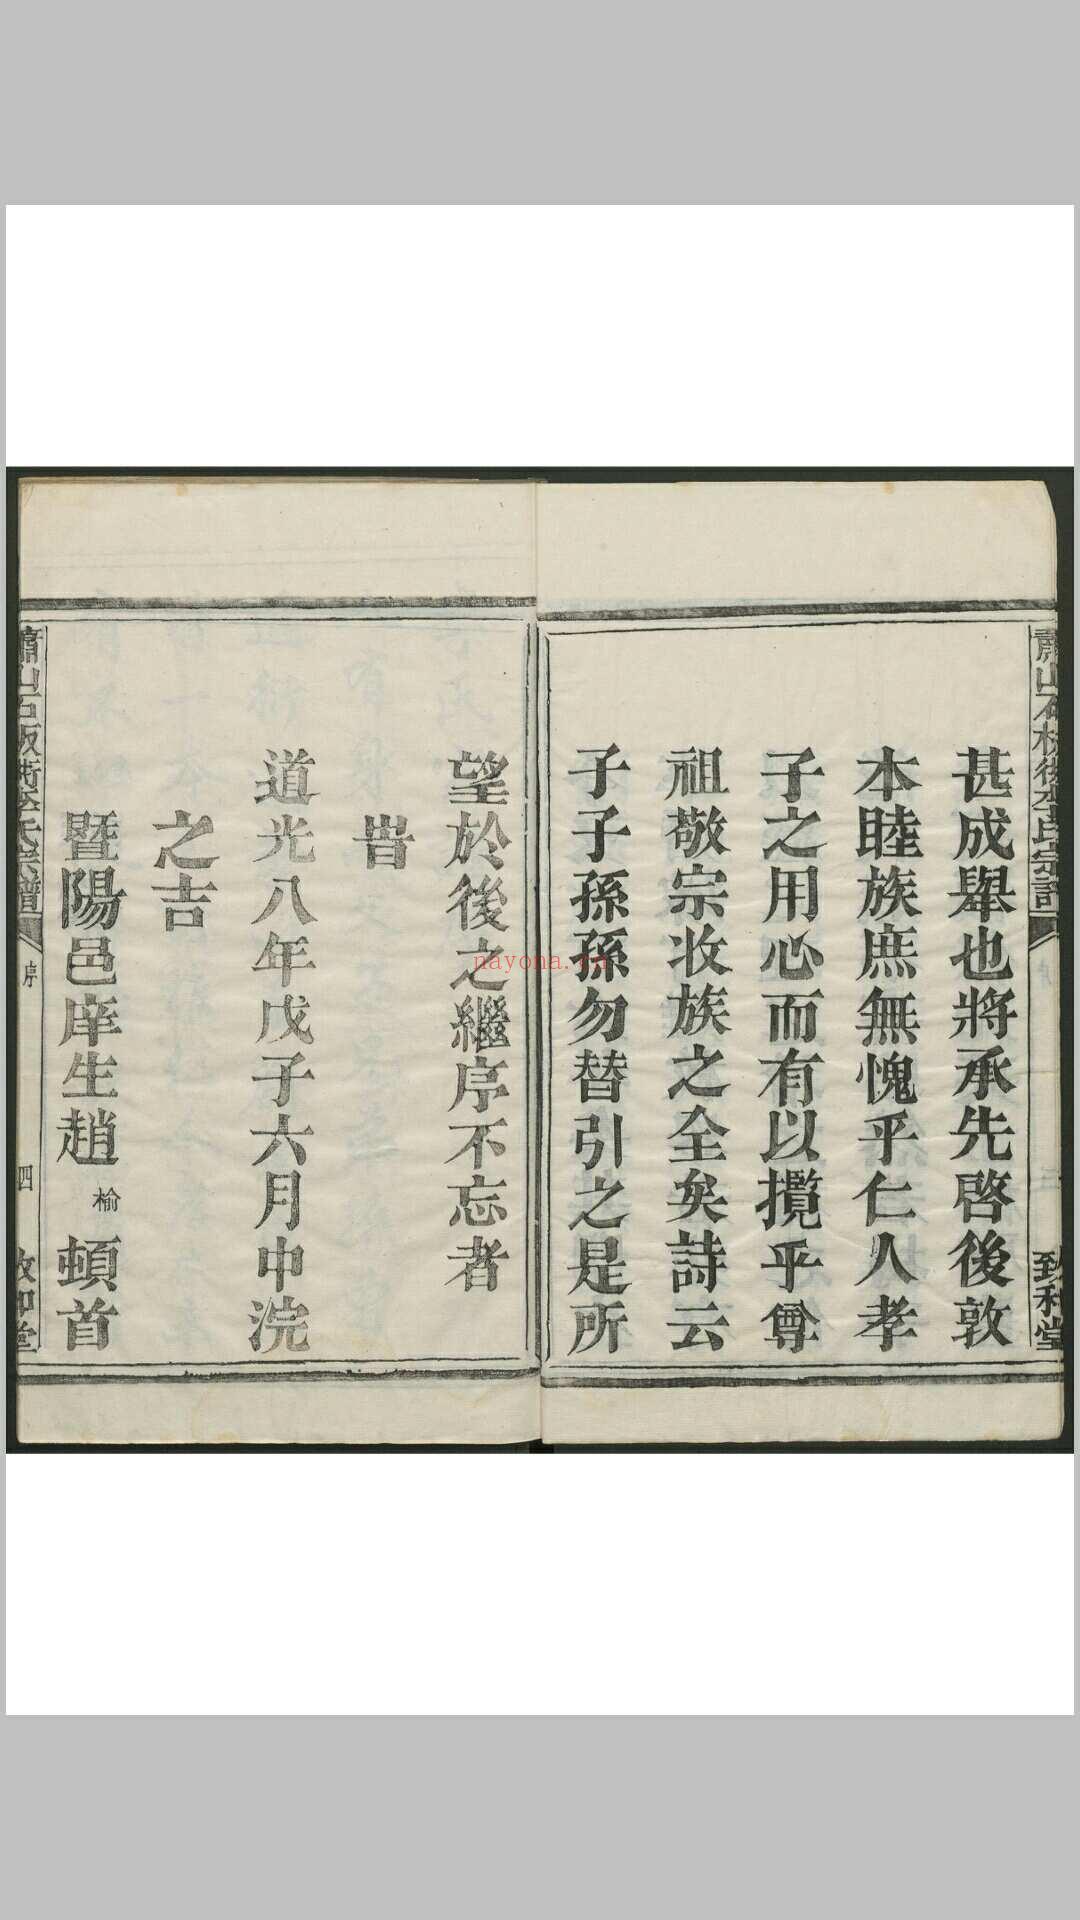 甚成舉也將承先啓後敦
本睦族庶無愧乎仁人孝
子之用心而有以攬乎尊
祖敬宗收族之全矣詩云
子子孫孫勿替引之是所
望於後之繼序不忘者
旹
道光八年戊子六月中浣
之吉
暨陽邑庠生趙榆頓首
蕭山 氏宗譜
序
四
nayona.cn